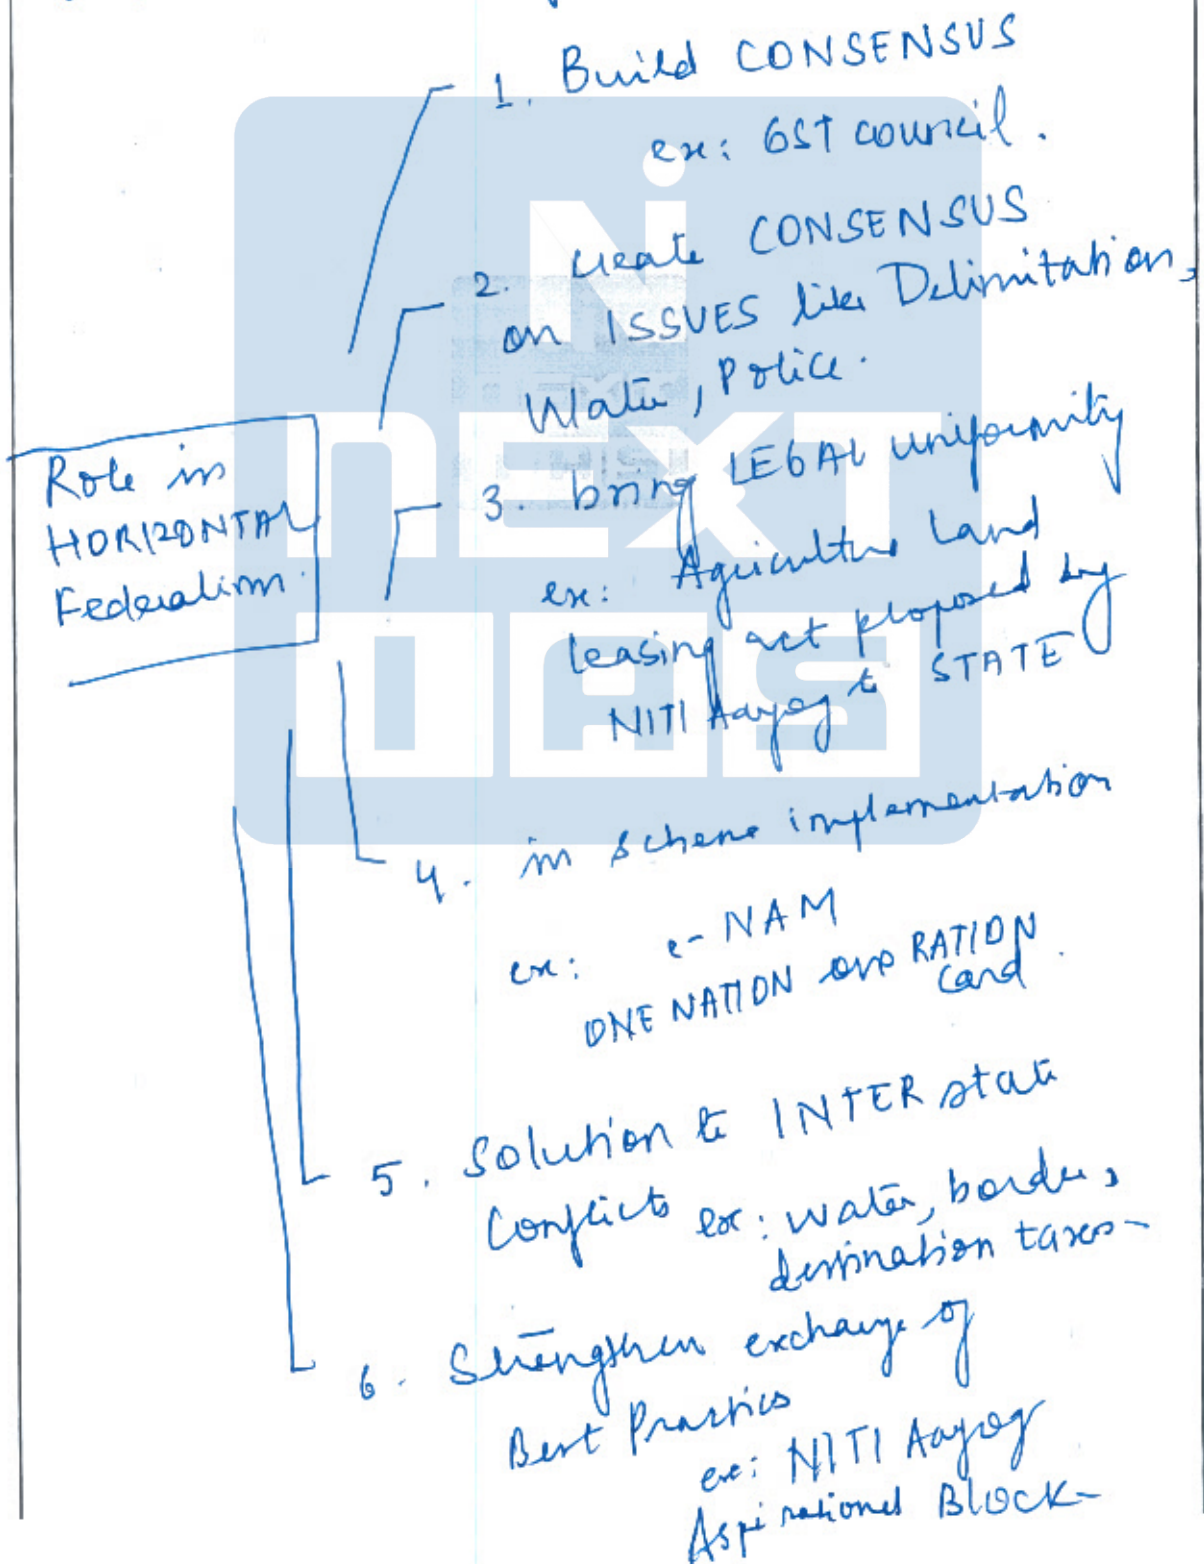 1. Build CONSENSUS
ex: GST council.
2. create CONSENSUS
on ISSUES like Delimitation,
Water, Police.
Role in
HORIZONTAL
Federalism.
3. bring LEGAL uniformity
ex: Agriculture Land
leasing act proposed by
NITI Aayog to STATE
4. in scheme implementation
ex: e-NAM
ONE NATION one RATION
Card.
5. Solution to INTER state
Conflicts ex: water, border,
destination taxes
6. Strengthen exchange of
Best Practices
ex: NITI Aayog
Aspirational BLOCK
NEXT
IAS